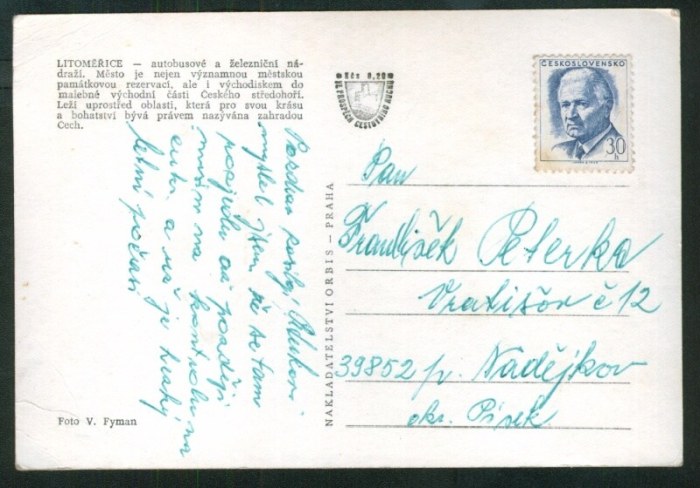 LITOMĚŘICE — autobusové a železniční ná-
draží. Město je nejen významnou městskou
památkovou rezervací, ale i východiskem do
malebné východní části Českého středohoří.
Leží uprostřed oblasti, která pro svou krásu
a bohatství bývá právem nazývána zahradou
Čech.
Kčs 0,20
VE PROSPĚCH CESTOVNÍHO RUCHU
ČESKOSLOVENSKO
30
h
Pozdrav
myslel jsem že se tam
pojedu až později
musím na kontrolu na
a už je
letní počasí
NAKLADATELSTVÍ ORBIS — PRAHA
Pan
František Peterka
Vratišov č 12
39852 p. Nadějkov
okr. Písek
Foto V. Fyman